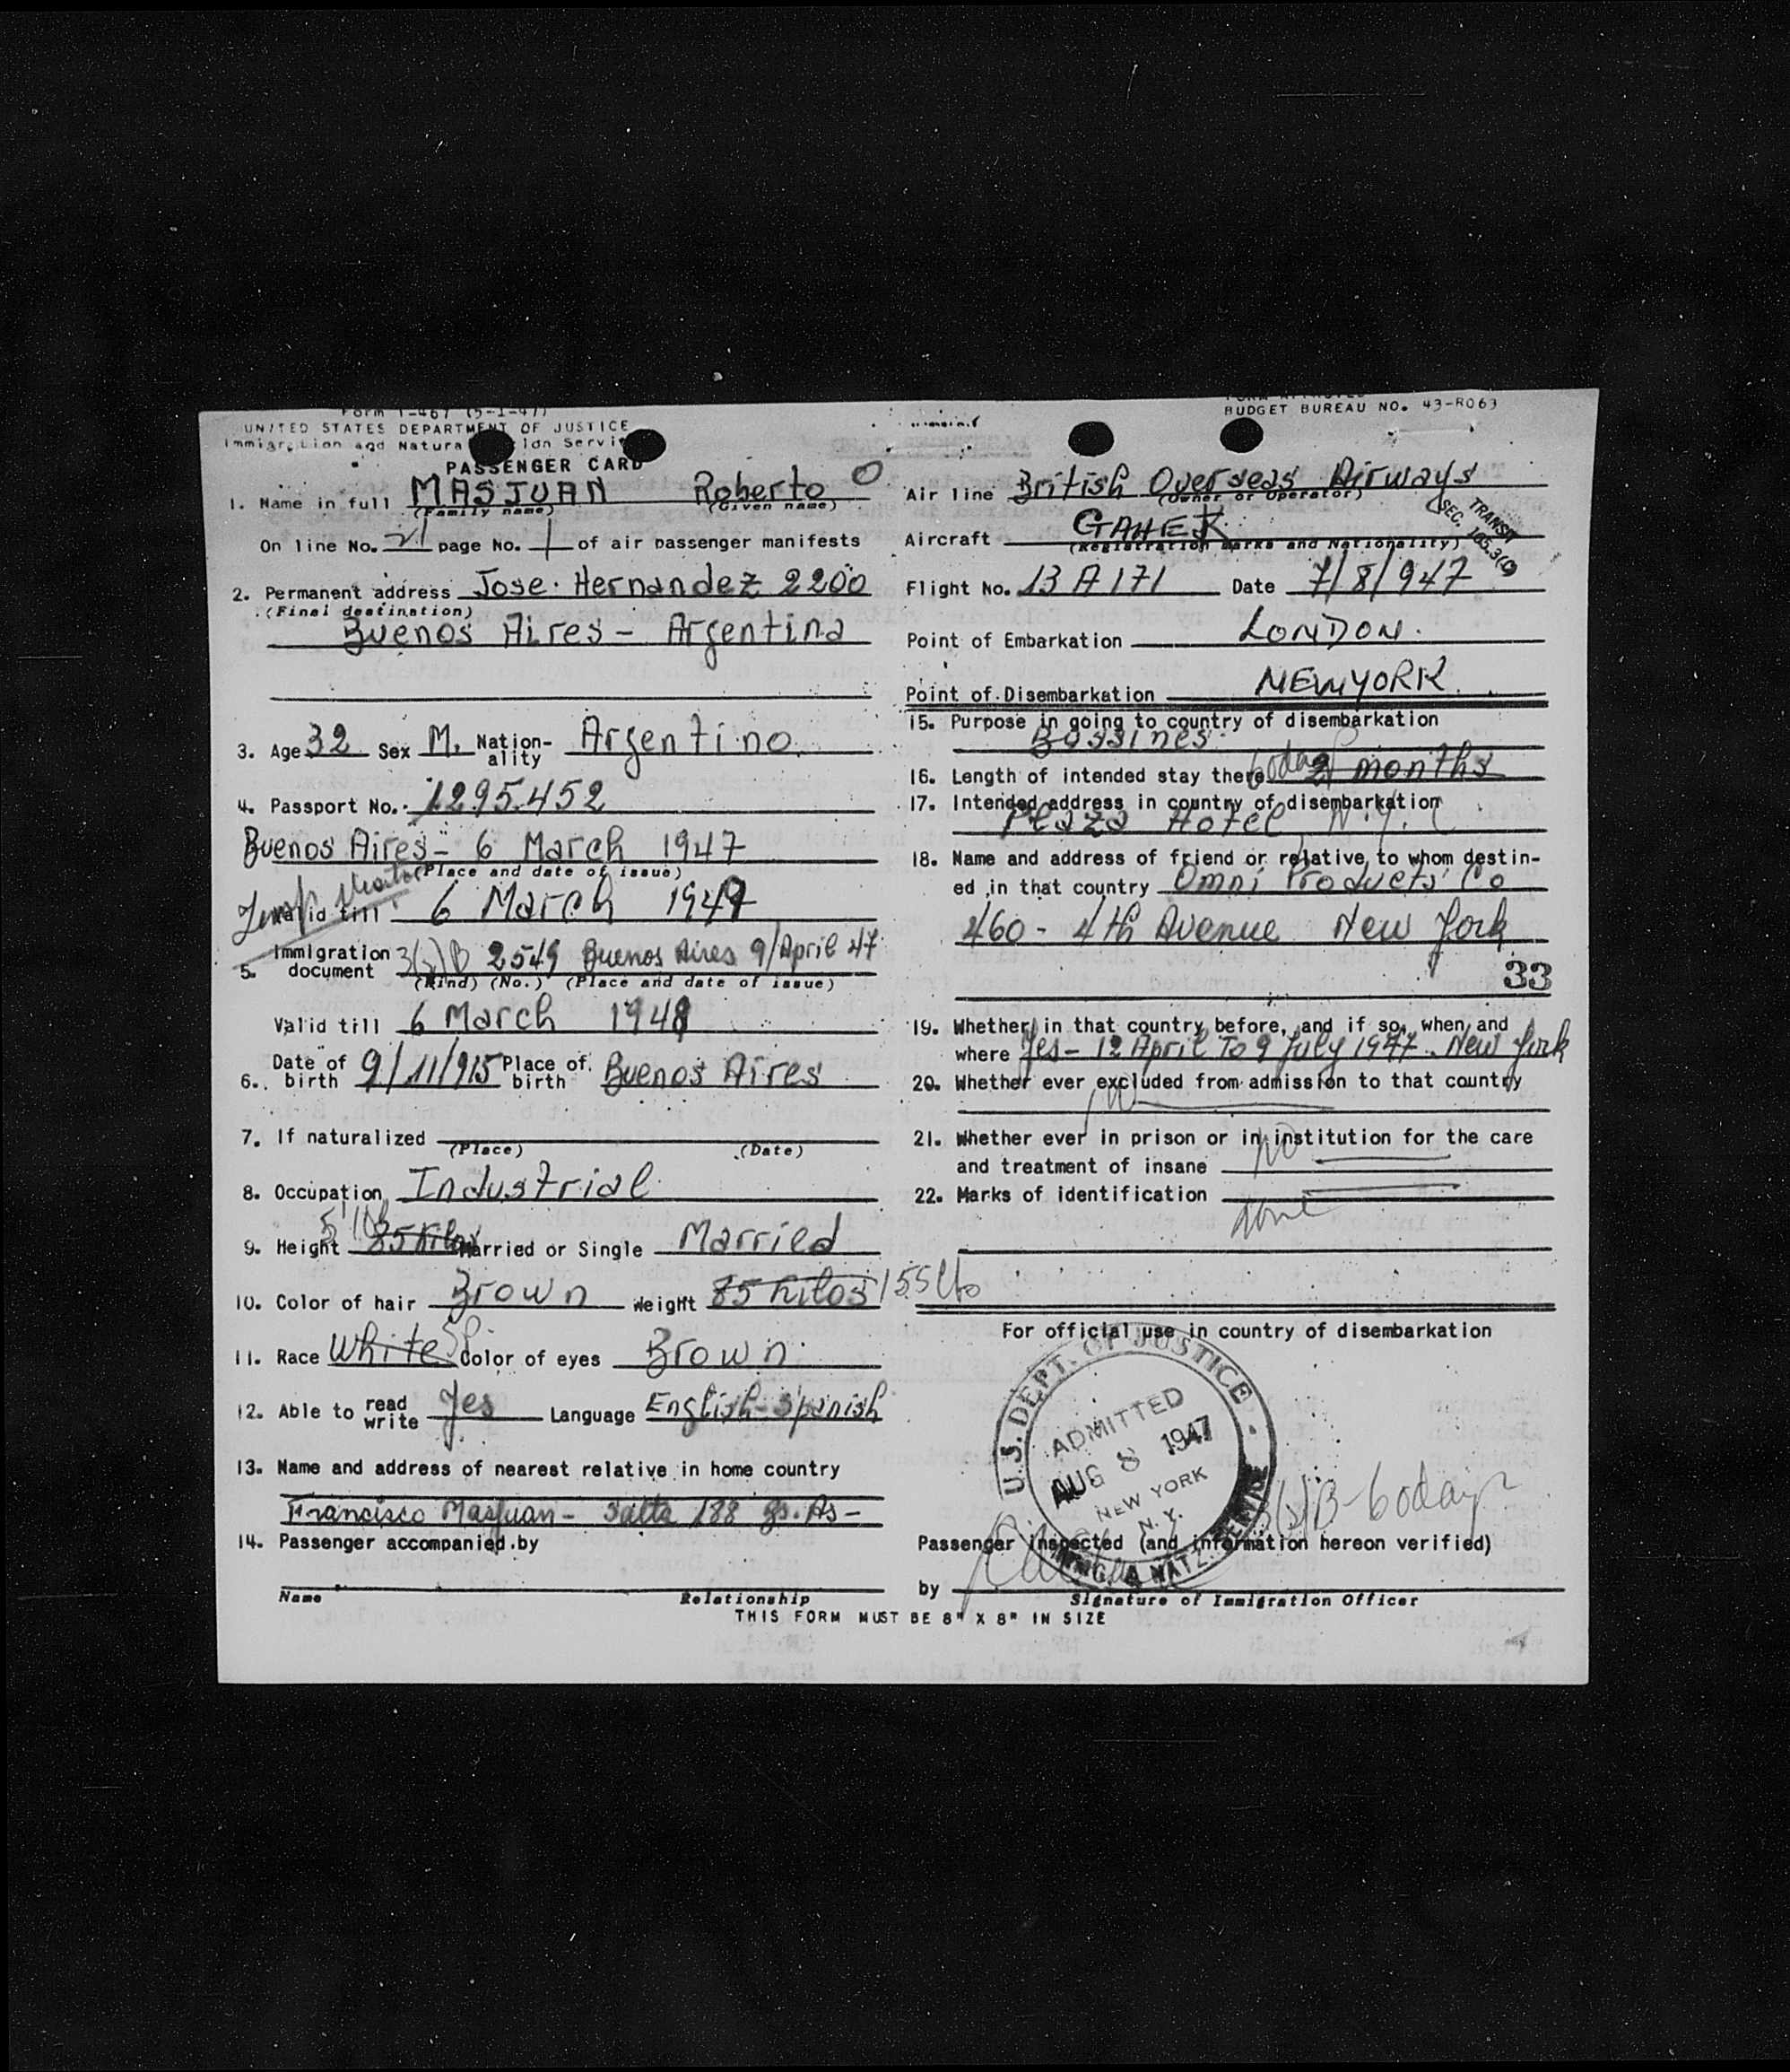 Form I-467 (5-1-47)
UNITED STATES DEPARTMENT OF JUSTICE
Immigration and Naturalization Service
PASSENGER CARD
1. Name in full MASJUAN Roberto O
(Family name) (Given name)
On line No. 21 page No. 1 of air passenger manifests
2. Permanent address Jose Hernandez 2200
(Final destination)
Buenos Aires - Argentina
3. Age 32 Sex M. Nationality Argentino
4. Passport No. 1295.452
Buenos Aires - 6 March 1947
(Place and date of issue)
Valid till 6 March 1949
5. Immigration document 3(2)B 2549 Buenos Aires 9/April 47
(Kind) (No.) (Place and date of issue)
Valid till 6 March 1948
6. Date of birth 9/11/915 Place of birth Buenos Aires
7. If naturalized
(Place) (Date)
8. Occupation Industrial
9. Height 85 Kilos Married or Single Married
10. Color of hair Brown Weight 85 Kilos 155 lbs
11. Race White Sp. Color of eyes Brown
12. Able to read write Yes Language English-Spanish
13. Name and address of nearest relative in home country
Francisco Masjuan - Salta 188 Bs. As -
14. Passenger accompanied by
Name Relationship
THIS FORM MUST BE 8" X 8" IN SIZE
BUDGET BUREAU NO. 43-R063
Air line British Overseas Airways
(Owner or Operator)
TRANSIT
SEC.
Aircraft GAHEK
(Registration marks and Nationality)
Flight No. 13 A 171 Date 7/8/947
Point of Embarkation LONDON.
Point of Disembarkation NEWYORK
15. Purpose in going to country of disembarkation
Bussines
16. Length of intended stay there 60 days 2 months
17. Intended address in country of disembarkation
Plaza Hotel N.Y.C
18. Name and address of friend or relative to whom destined in that country Omni Products Co
460 - 4th Avenue New York
33
19. Whether in that country before, and if so, when and
where Yes - 12 April To 9 July 1947. New York
20. Whether ever excluded from admission to that country
No
21. Whether ever in prison or in institution for the care
and treatment of insane No
22. Marks of identification
none
For official use in country of disembarkation
U.S. DEPT. OF JUSTICE
ADMITTED
AUG 8 1947
NEW YORK
N.Y.
IMMIG. & NATZ. SERVICE
3(2)B - 60 days
Passenger inspected (and information hereon verified)
by
Signature of Immigration Officer